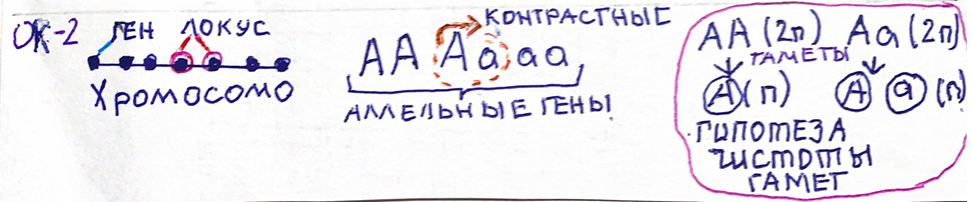 ОК-2
ГЕН ЛОКУС
ХРОМОСОМО
КОНТРАСТНЫЕ
АА Аа аа
АЛЛЕЛЬНЫЕ ГЕНЫ
АА (2п) Аа (2п)
ГАМЕТЫ
А (п) А а (п)
ГИПОТЕЗА
ЧИСТОТЫ
ГАМЕТ